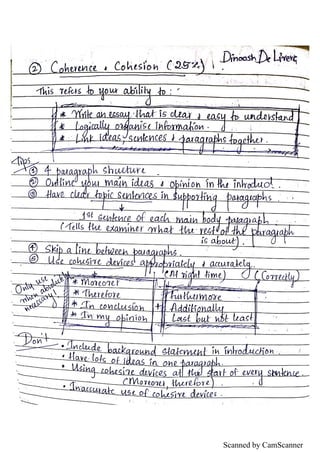 Dinoosh De Livera
② Coherence & Cohesion (25%) :
This refers to your ability to :
* Write an essay that is clear & easy to understand
* Logically organise information.
* Link ideas, sentences & paragraphs together.
Tips
① 4 paragraph structure.
② Outline your main ideas & opinion in the introduct.
③ Have clear topic sentences in supporting paragraphs
1st sentence of each main body paragraph.
(Tells the examiner what the rest of the paragraph
is about).
④ Skip a line between paragraphs.
⑤ Use cohesive devices appropriately & accurately.
(At right time) (Correctly)
Only use when absolutely necessary!
* Moreover
* Therefore
* In conclusion
* In my opinion
+
Furthermore
Additionally
Last but not least
Don't
• Include background statement in introduction.
• Have lots of ideas in one paragraph.
• Using cohesive devices at the start of every sentence.
(Moreover, therefore)
• Inaccurate use of cohesive devices.
Scanned by CamScanner